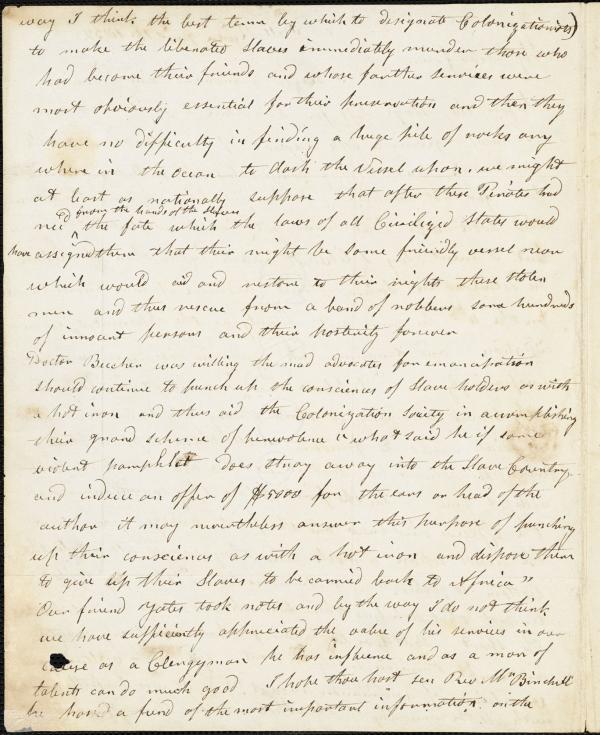 way I think the best term by which to designate Colonizationists)
to make the liberated slaves immediately murder those who
had become their friends and whose farther services were
most obviously essential for their preservation and then they
have no difficulty in finding a huge pile of rocks any
where in the ocean to dash the vessel upon, we might
at least as rationally suppose that after these Pirates had
from the hands of the slaves
rec'd the fate which the laws of all Civilized States would
have assigned them that their might be some friendly vessel near
which would aid and restore to their rights these stolen
men and thus rescue from a band of robbers some hundreds
of innocent persons and their posterity forever
Doctor Beecher was willing the mad advocates for emancipation
should continue to punch up the consciences of Slave holders as with
a hot iron and thus aid the Colonization Society in accomplishing
their grand scheme of benevolence "what said he if some
violent pamphlet does stray away into the Slave Country
and induce an offer of $5000 for the ears or head of the
author it may nevertheless answer this purpose of punching
up their consciences as with a hot iron and dispose them
to give up their Slaves to be carried back to Africa"
Our friend Yates took notes and by the way I do not think
we have sufficiently appreciated the value of his services in our
cause as a Clergyman he has influence and as a man of
talents can do much good I hope thou hast seen Rev Mr
he has a fund of the most important information on the